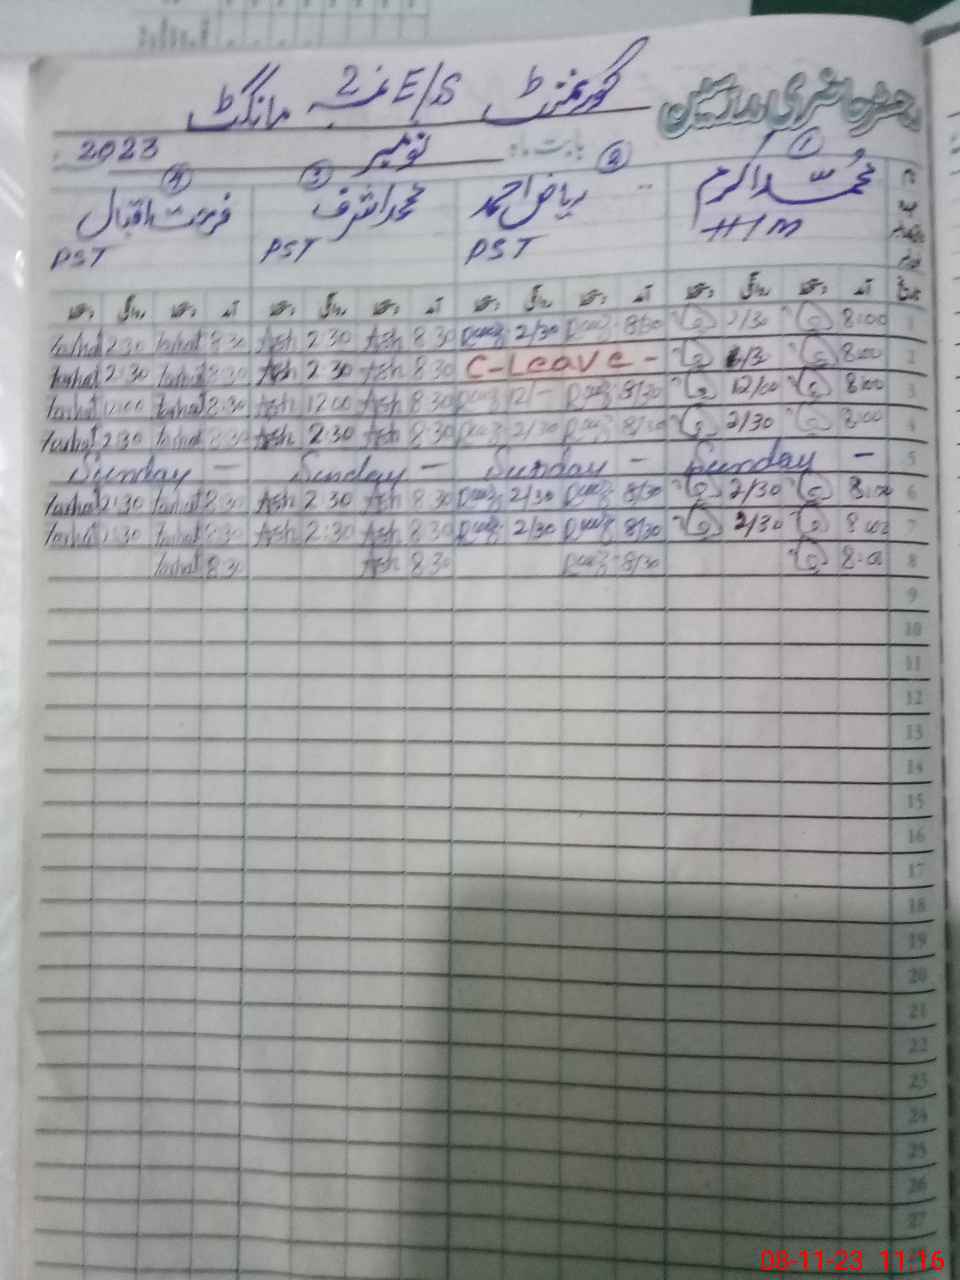 رجسٹر حاضری مدرسین گورنمنٹ E/S نمبر 2 مانگٹ
بابت ماہ نومبر 2023
① ② ③ ④
محمد اکرم ریاض احمد محمد اشرف فرحت اقبال
H/M PST PST PST
آمد دستخط روانگی دستخط آمد دستخط روانگی دستخط آمد دستخط روانگی دستخط آمد دستخط روانگی دستخط
1 8:00 2/30 8/30 2/30 8 30 Ash 2 30 Ash 8:30 Farhat 2:30 Farhat
2 8:00 C-Leave - 8 30 Ash 2 30 Ash 8:30 Farhat 2:30 Farhat
3 8:00 12/00 8/30 12/- 8:30 Ash 12 00 Ash 8:30 Farhat 12:00 Farhat
4 8:00 2/30 8/30 2/30 8:30 Ash 2:30 Ash 8:30 Farhat 2:30 Farhat
5 Sunday - Sunday - Sunday - Sunday -
6 8:00 2/30 8/30 2/30 8:30 Ash 2 30 Ash 8:30 Farhat 2:30 Farhat
7 8:00 2/30 8/30 2/30 8:30 Ash 2:30 Ash 8:30 Farhat 2:30 Farhat
8 8:00 8/30 8 30 Ash 8 30 Farhat
9
10
11
12
13
14
15
16
17
18
19
20
21
22
23
24
25
26
27
08-11-23 11:16